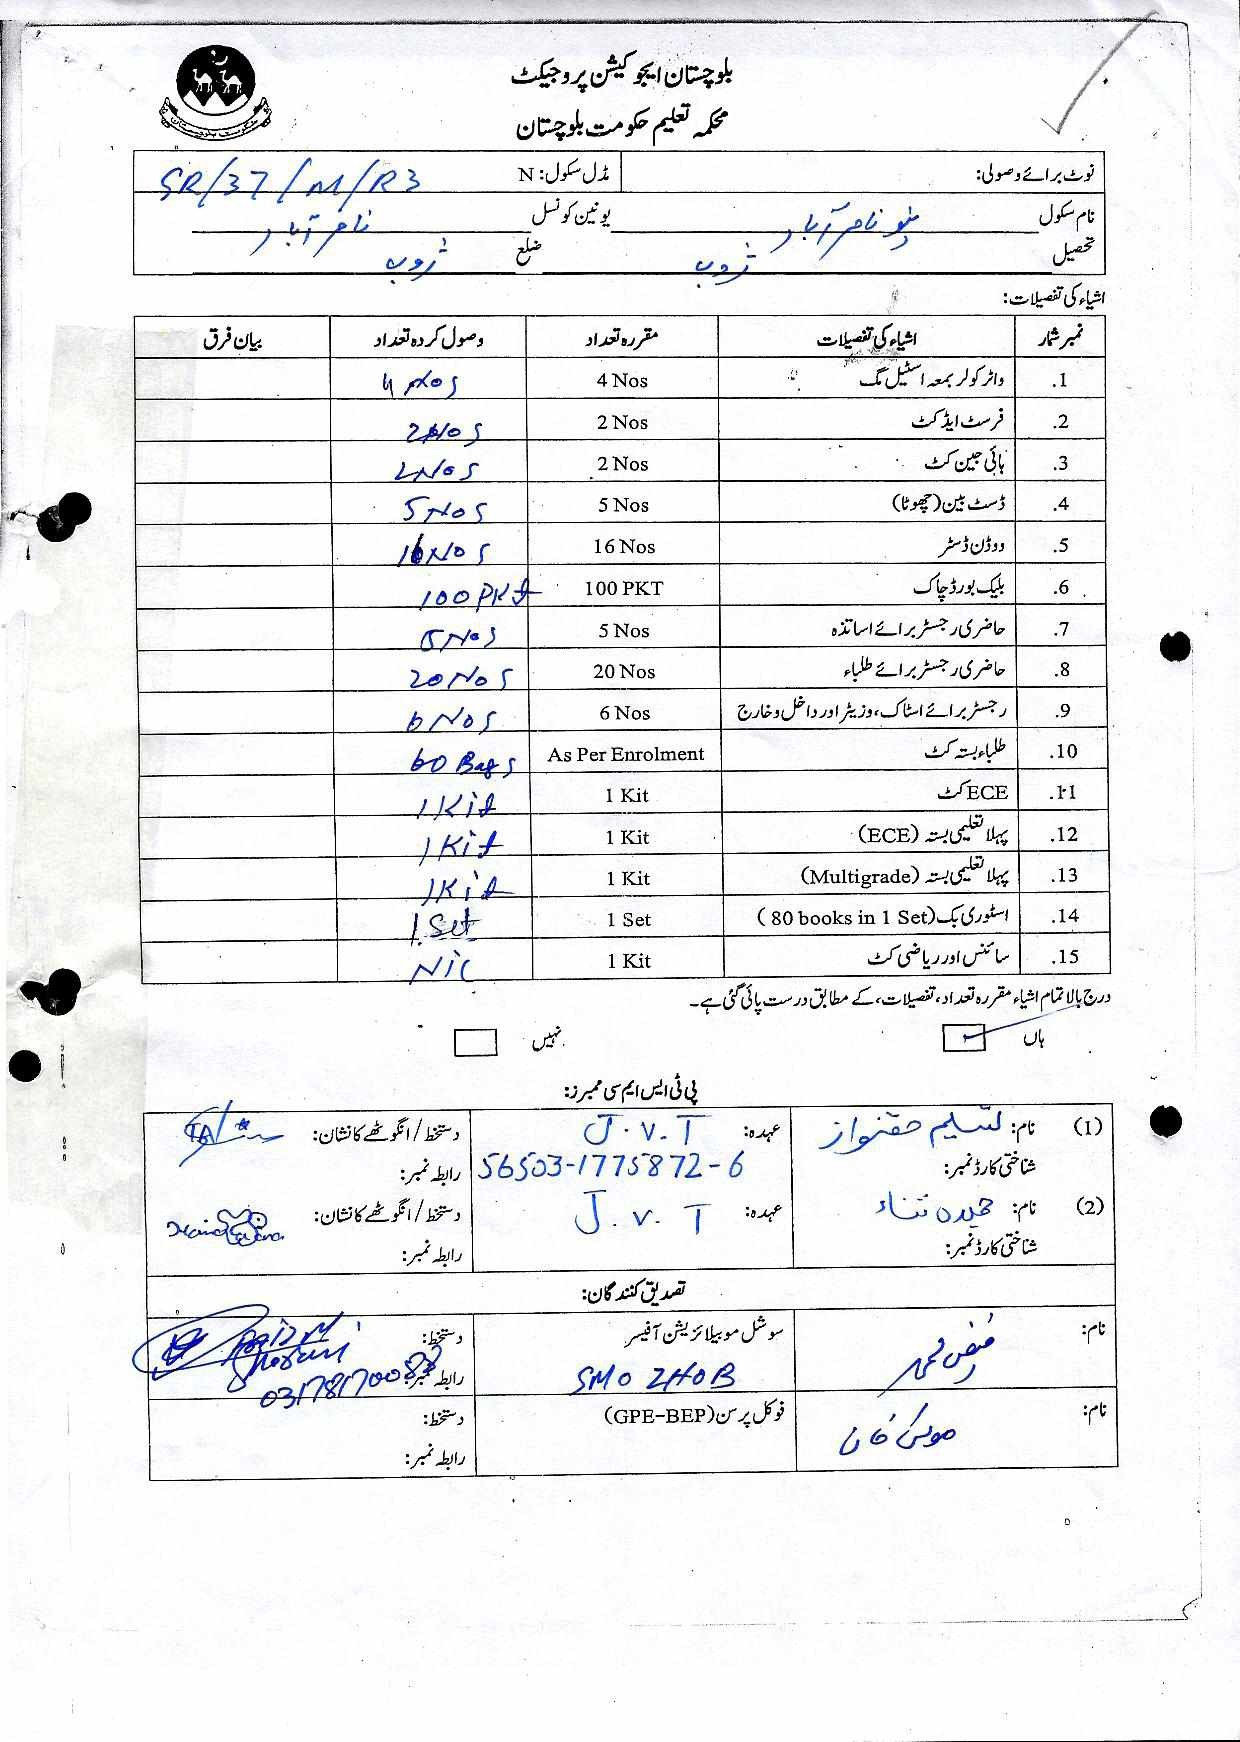 بلوچستان ایجوکیشن پروجیکٹ
محکمہ تعلیم حکومت بلوچستان
نوٹ برائے وصولی: مڈل سکول: N SR/37/M/R3
نام سکول نیو ناصر آباد یونین کونسل ناصر آباد
تحصیل ژوب ضلع ژوب
اشیاء کی تفصیلات:
نمبر شمار اشیاء کی تفصیلات مقررہ تعداد وصول کردہ تعداد بیان فرق
1. واٹر کولر بمعہ اسٹیل مگ 4 Nos 4 Nos
2. فرسٹ ایڈ کٹ 2 Nos 2 Nos
3. ہائی جین کٹ 2 Nos 2 Nos
4. ڈسٹ بین (چھوٹا) 5 Nos 5 Nos
5. ووڈن ڈسٹر 16 Nos 16 Nos
6. بلیک بورڈ چاک 100 PKT 100 PKt
7. حاضری رجسٹر برائے اساتذہ 5 Nos 5 Nos
8. حاضری رجسٹر برائے طلباء 20 Nos 20 Nos
9. رجسٹر برائے اسٹاک، وزیٹر اور داخل و خارج 6 Nos 6 Nos
10. طلباء بستہ کٹ As Per Enrolment 60 Bags
11. ECE کٹ 1 Kit 1 Kit
12. پہلا تعلیمی بستہ (ECE) 1 Kit 1 Kit
13. پہلا تعلیمی بستہ (Multigrade) 1 Kit 1 Kit
14. اسٹوری بک (80 books in 1 Set) 1 Set 1 Set
15. سائنس اور ریاضی کٹ 1 Kit NIL
درج بالا تمام اشیاء مقررہ تعداد، تفصیلات، کے مطابق درست پائی گئی ہے۔
ہاں نہیں
پی ٹی ایس ایم سی ممبرز:
(1) نام: تسلیم حقنواز عہدہ: J.V.T دستخط/انگوٹھے کا نشان:
شناختی کارڈ نمبر: 56503-1775872-6 رابطہ نمبر:
(2) نام: حمیدہ ثناء عہدہ: J.V.T دستخط/انگوٹھے کا نشان:
شناختی کارڈ نمبر: رابطہ نمبر:
تصدیق کنندگان:
نام: فیض محمد سوشل موبیلائزیشن آفیسر دستخط:
SMO ZHOB رابطہ نمبر:
نام: موسیٰ خان فوکل پرسن (GPE-BEP) دستخط:
رابطہ نمبر: